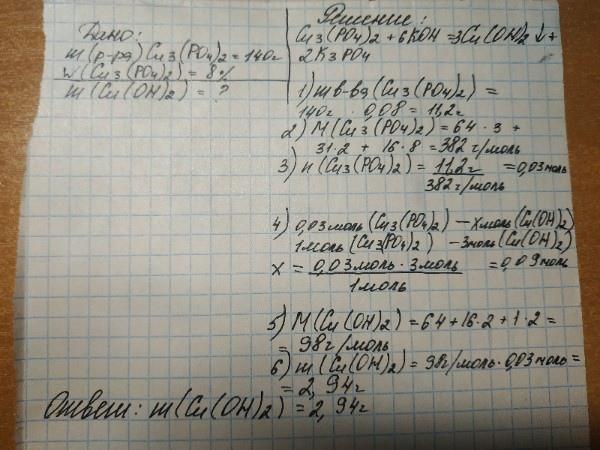 Дано:
m(р-ра)Cu3(PO4)2=140г
W(Cu3(PO4)2)=8%
m(Cu(OH)2)=?
Решение:
Cu3(PO4)2+6KOH=3Cu(OH)2↓+
2K3PO4
1) m в-ва(Cu3(PO4)2)=
140г·0,08=11,2г
2) M(Cu3(PO4)2)=64·3+
31·2+16·8=382г/моль
3) n(Cu3(PO4)2)=11,2г/382г/моль=0,03моль
4) 0,03моль(Cu3(PO4)2)-xмоль(Cu(OH)2)
1моль(Cu3(PO4)2)-3моль(Cu(OH)2)
x=0,03моль·3моль/1моль=0,09моль
5) M(Cu(OH)2)=64+16·2+1·2=
=98г/моль
6) m(Cu(OH)2)=98г/моль·0,03моль=
=2,94г
Ответ: m(Cu(OH)2)=2,94г